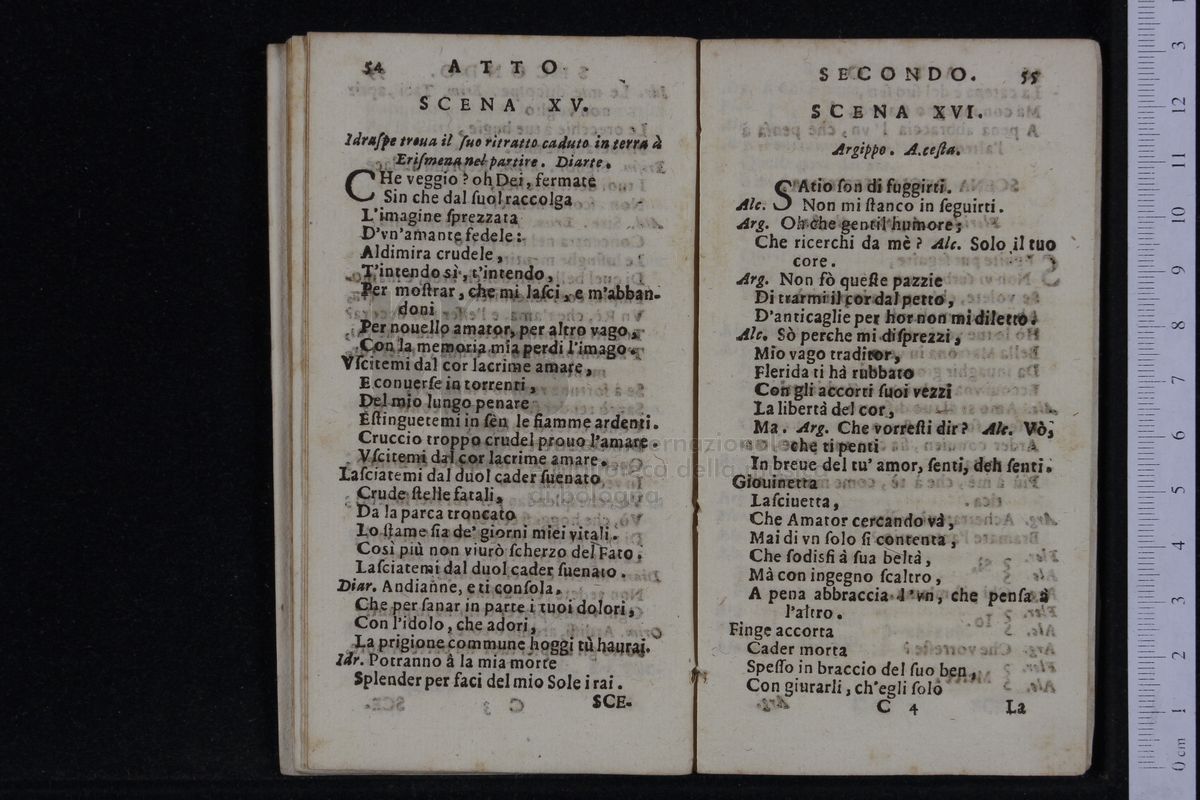 54 ATTO
SCENA XV.
Idraſpe troua il ſuo ritratto caduto in terra à
Eriſmena nel partire. Diarte.
CHe veggio? oh Dei, fermate
Sin che dal ſuol raccolga
L'imagine ſprezzata
D'vn'amante fedele:
Aldimira crudele,
T'intendo sì, t'intendo,
Per moſtrar, che mi laſci, e m'abban-
doni
Per nouello amator, per altro vago,
Con la memoria mia perdi l'imago.
Vſcitemi dal cor lacrime amare,
E conuerſe in torrenti,
Del mio lungo penare
Eſtinguetemi in ſèn le fiamme ardenti.
Cruccio troppo crudel prouo l'amare.
Vſcitemi dal cor lacrime amare.
Laſciatemi dal duol cader ſuenato
Crude ſtelle fatali,
Da la parca troncato
Lo ſtame ſia de' giorni miei vitali.
Così più non viurò ſcherzo del Fato.
Laſciatemi dal duol cader ſuenato.
Diar. Andianne, e ti conſola.
Che per ſanar in parte i tuoi dolori,
Con l'idolo, che adori,
La prigione commune hoggi tù haurai.
Idr. Potranno à la mia morte
Splender per faci del mio Sole i rai.
C 3 SCE-
SECONDO. 55
SCENA XVI.
Argippo. Alceſta.
SAtio ſon di fuggirti.
Alc. Non mi ſtanco in ſeguirti.
Arg. Oh che gentil humore;
Che ricerchi da mè? Alc. Solo il tuo
core.
Arg. Non fò queſte pazzie
Di trarmi il cor dal petto,
D'anticaglie per hor non mi diletto.
Alc. Sò perche mi diſprezzi,
Mio vago traditor,
Flerida ti hà rubbato
Con gli accorti ſuoi vezzi
La libertà del cor,
Ma. Arg. Che vorreſti dir? Alc. Vò,
che ti penti
In breue del tu' amor, ſenti, deh ſenti.
Giouinetta
Laſciuetta,
Che Amator cercando và,
Mai di vn ſolo ſi contenta,
Che ſodisfi à ſua beltà,
Mà con ingegno ſcaltro,
A pena abbraccia l'vn, che penſa à
l'altro.
Finge accorta
Cader morta
Speſſo in braccio del ſuo ben,
Con giurarli, ch'egli ſolo
C 4 La